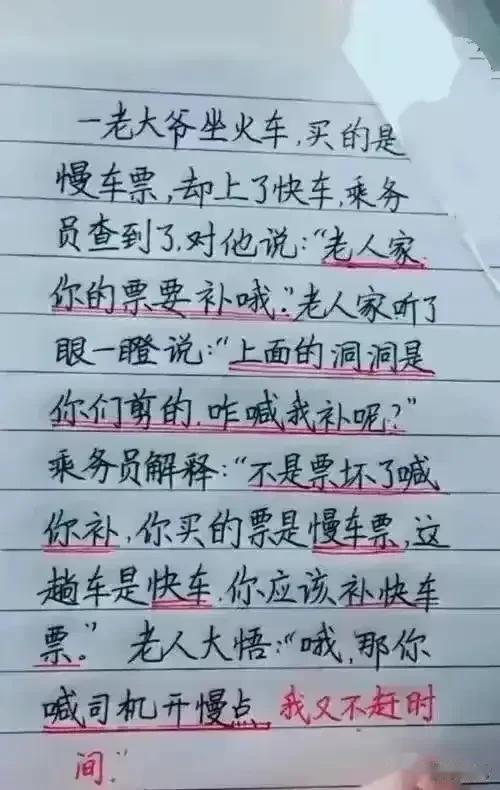 一老大爷坐火车,买的是
慢车票,却上了快车,乘务
员查到了,对他说:“老人家,
你的票要补哦。”老人家听了
眼一瞪说:“上面的洞洞是
你们剪的,咋喊我补呢?”
乘务员解释:“不是票坏了喊
你补,你买的票是慢车票,这
趟车是快车,你应该补快车
票。”老人大悟:“哦,那你
喊司机开慢点,我又不赶时
间.”